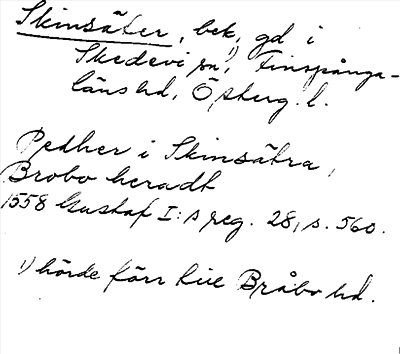 Skinsäter, bek. gd i
Skedevi sn¹⁾, Finspånga-
länshd, Österg. l.
Pedher i Skinsätra,
Brobo heradt
1558 Gustaf I:s reg. 28, s. 560.
¹⁾ hörde förr till Bråbo hd.